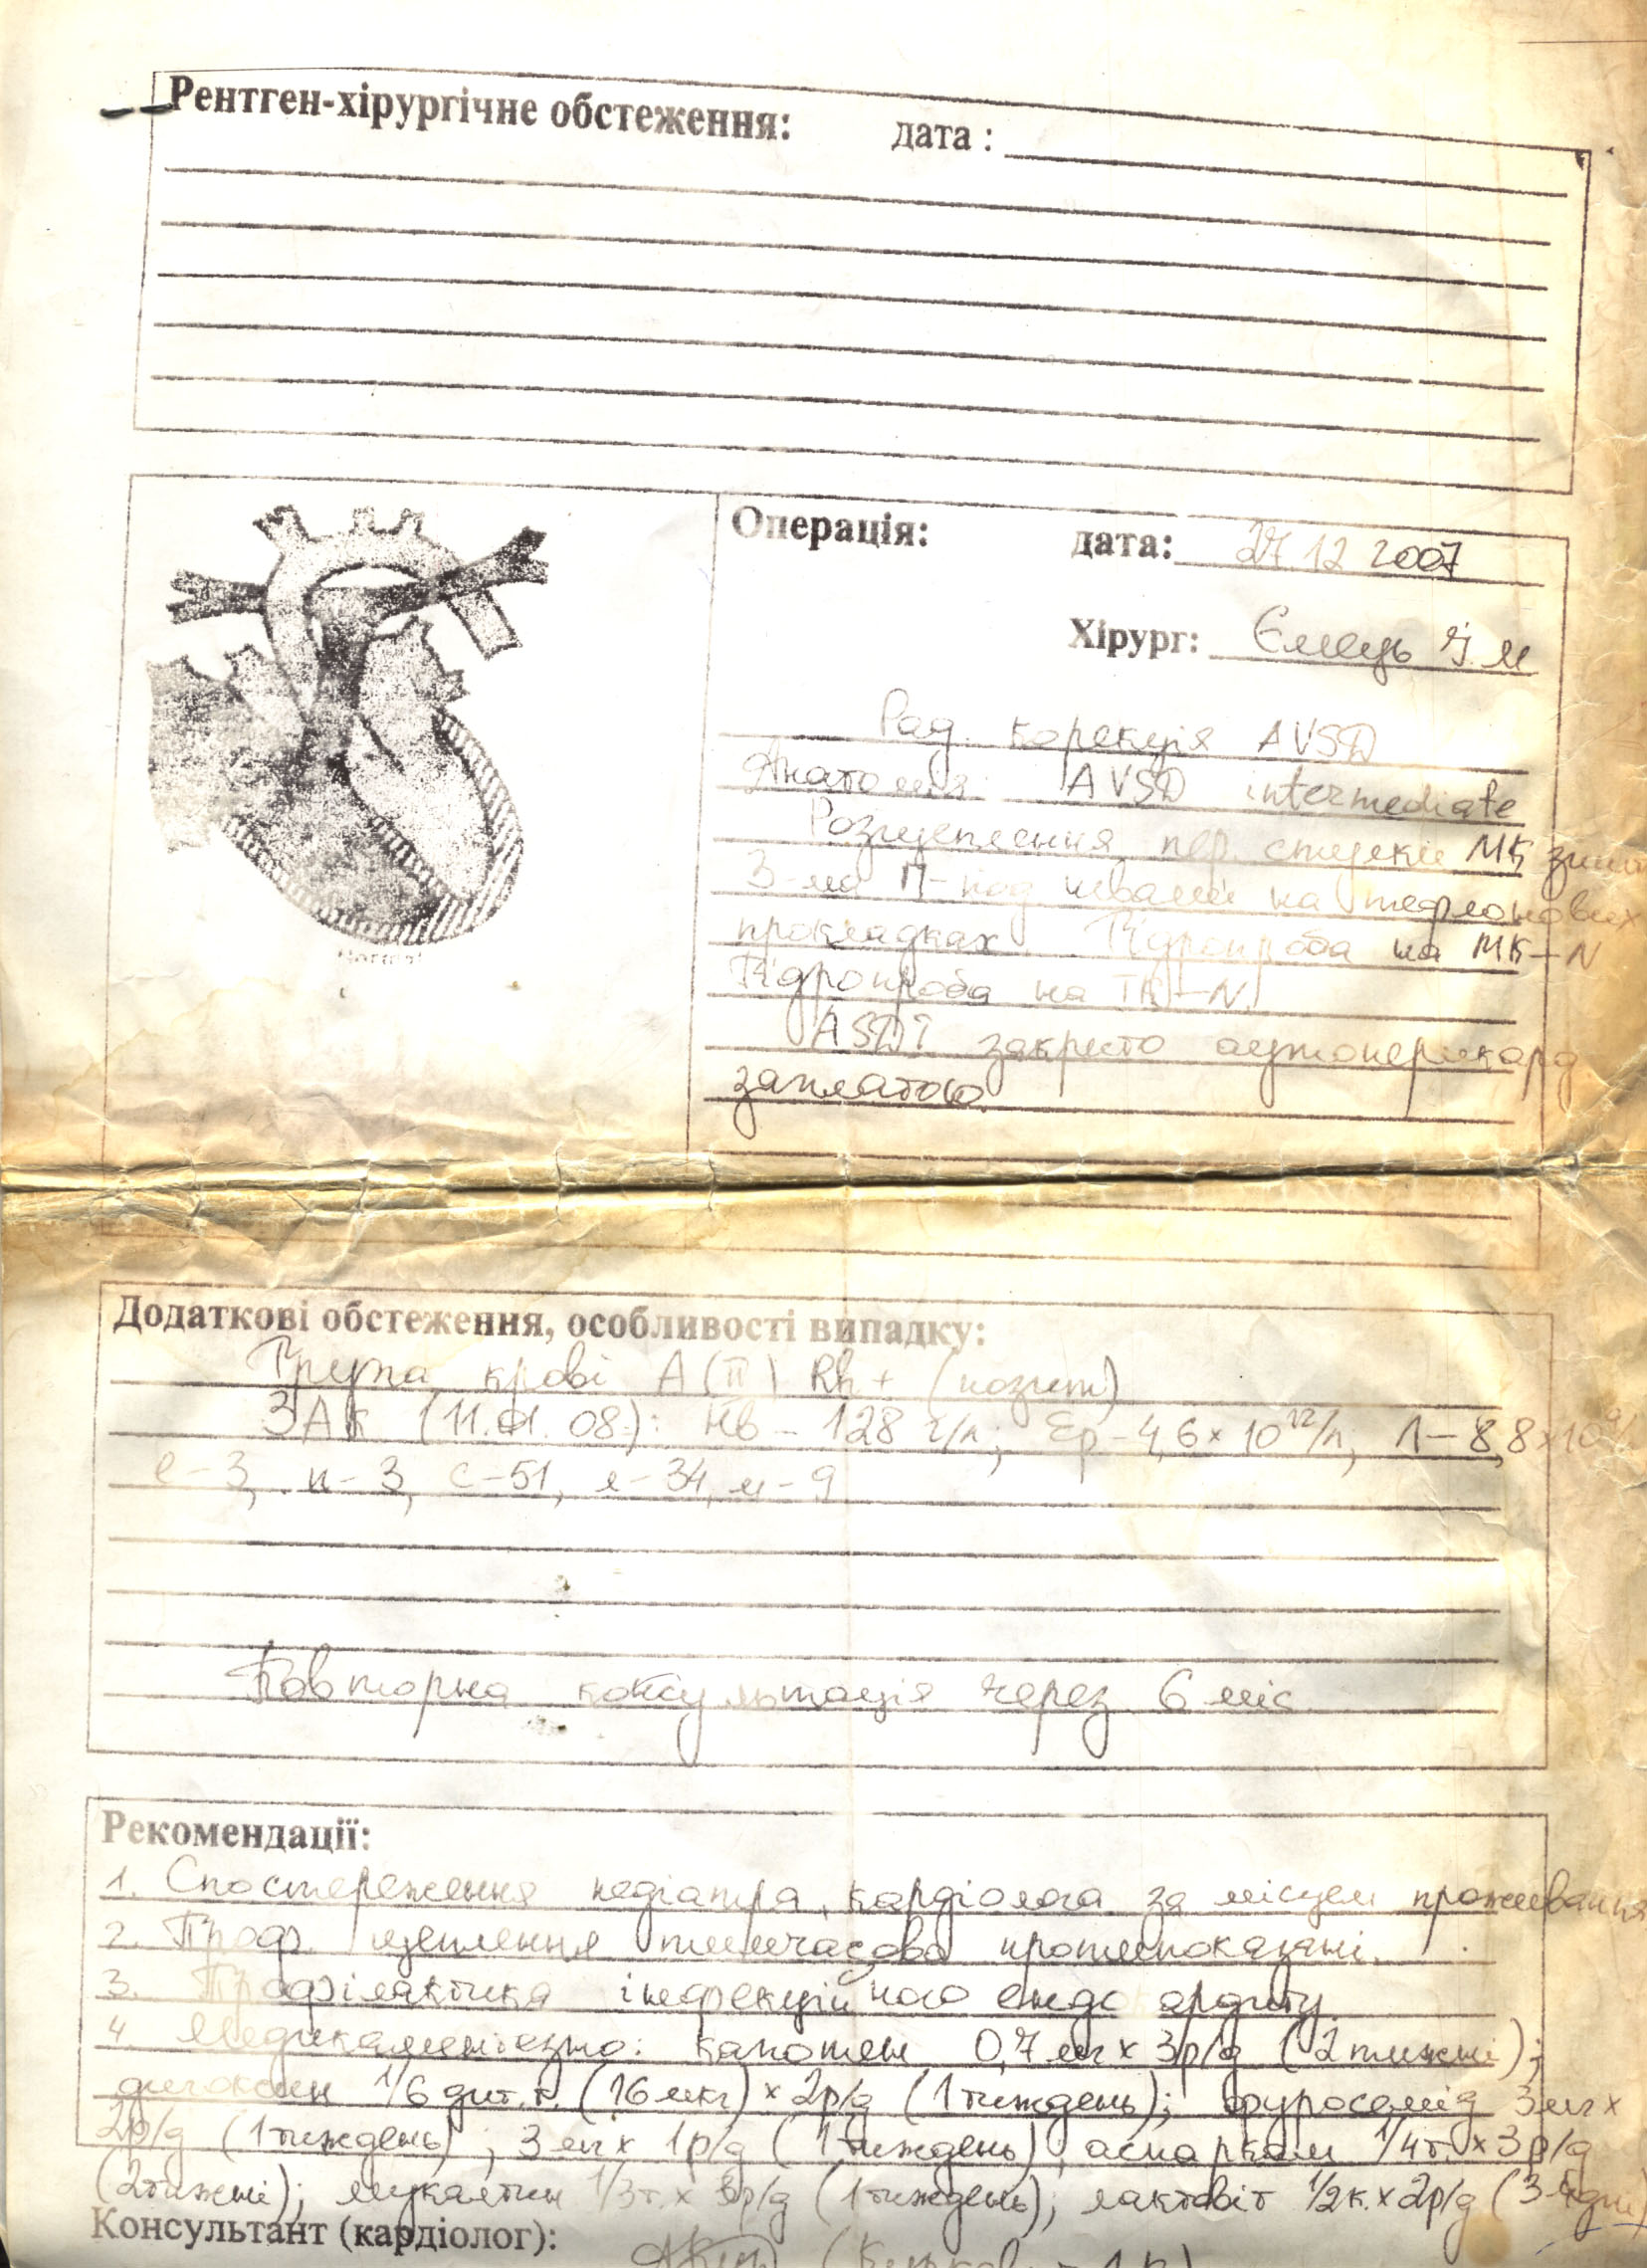 Рентген-хірургічне обстеження: дата :
Операція: дата: 27 12 2007
Хірург: Ємець І. М
Рад. корекція AVSD
Анатомія: AVSD intermediate
Розщеплення пер. стулки МК
3-ма П-под швами на тефлонових
прокладках. Гідропроба на МК – N
Гідропроба на ТК – N.
ASD1 закрито аутоперикард
заплатою.
Normal
Додаткові обстеження, особливості випадку:
Група крові А (II) Rh + (позит)
ЗАК (11.01.08.): Нв – 128 г/л; Ер – 4,6 × 10¹²/л, Л – 8,8 × 10⁹/
е – 3, п – 3, с – 51, л – 34, м – 9
Повторна консультація через 6 міс
Рекомендації:
1. Спостереження педіатра, кардіолога за місцем проживання
2. Проф. щеплення тимчасово протипоказані.
3. Профілактика інфекційного ендокардиту
4. Медикаментозно: капотен 0,7 мг × 3р/д (2 тижні);
дигоксин 1/6 дит. т. (16 мкг) × 2р/д (1 тиждень); фуросемід 3 мг ×
2р/д (1 тиждень); 3 мг × 1р/д (1 тиждень), аспаркам 1/4т. × 3р/д
(2 тижні); мукалтин 1/3т. × 3р/д (1 тиждень); лактовіт 1/2к. × 2р/д
Консультант (кардіолог):